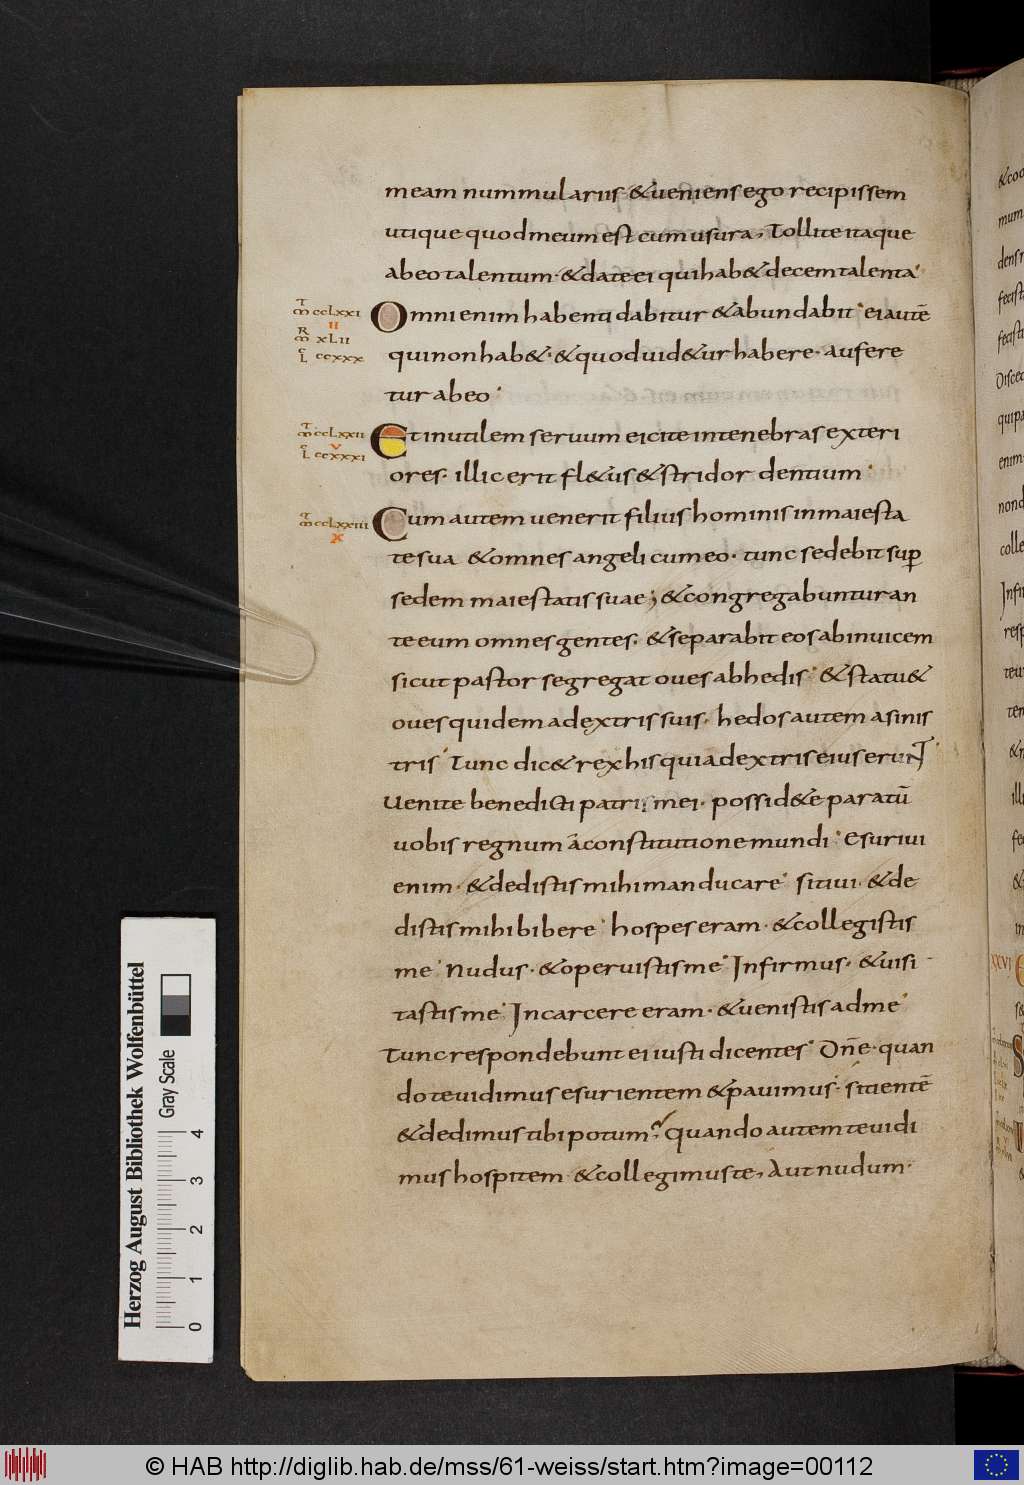 meam nummulariis & ueniens ego recipissem
utique quod meum est cum usura, Tollite itaque
ab eo talentum · & date ei qui hab& decem talenta ·
Omni enim habenti dabitur & abundabit · ei autē
qui non hab& · & quod uid&ur habere · aufere
tur ab eo ·
Et inutilem seruum eicite in tenebras exteri
ores · illic erit fl&us & stridor dentium ·
Cum autem uenerit filius hominis in maiesta
te sua & omnes angeli cum eo · tunc sedebit sup̄
sedem maiestatis suae ; & congregabuntur an
te eum omnes gentes · & separabit eos ab inuicem
sicut pastor segregat oues ab hedis · & statu&
oues quidem a dextris suis · hedos autem a sinis
tris · Tunc dic& rex his qui a dextris eius erunt ·
Uenite benedicti patris mei · possid&e paratū
uobis regnum á constitutione mundi · Esuriui
enim · & dedistis mihi manducare · sitiui · & de
distis mihi bibere · hospes eram · & collegistis
me · Nudus · & operuistis me · Infirmus · & uisi
tastis me · In carcere eram · & uenistis ad me ·
Tunc respondebunt ei iusti dicentes · Dn̄e · quan
do te uidimus esurientem & pauimus · sitientē
& dedimus tibi potum? quando autem te uidi
mus hospitem · & collegimus te, Aut nudum ·
CCLXXI
II
XLII
CCXXX
CCLXXII
V
CCXXXI
CCLXXIII
X
XXVI
Herzog August Bibliothek Wolfenbüttel
Gray Scale
0 1 2 3 4
© HAB http://diglib.hab.de/mss/61-weiss/start.htm?image=00112